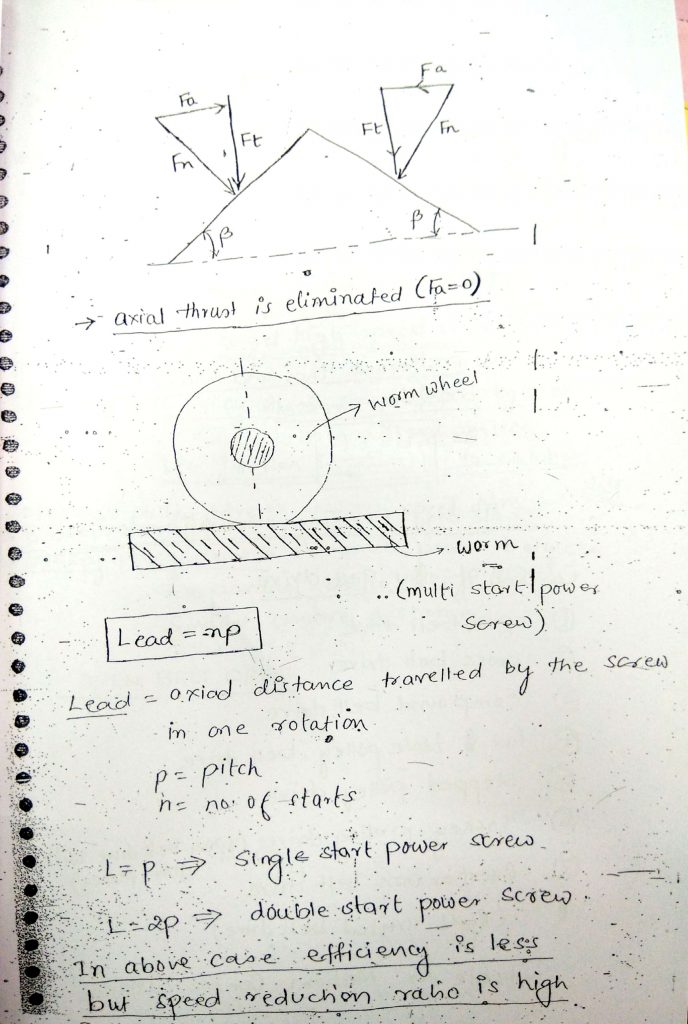 Fa
Ft
Fn
Fa
Ft
Fn
β
β
→ axial thrust is eliminated (Fa=0)
worm wheel
worm
(multi start power
screw)
Lead = np
Lead = axial distance travelled by the screw
in one rotation
p = pitch
n = no. of starts
L = p ⇒ single start power screw
L = 2p ⇒ double start power screw.
In above case efficiency is less
but speed reduction ratio is high